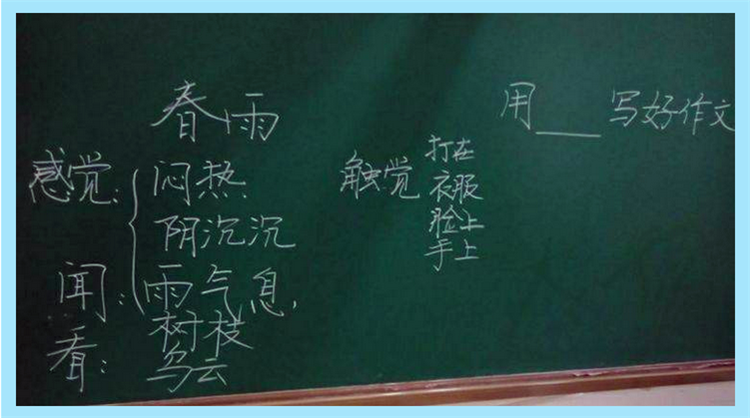 春雨
用___写好作文
感觉：闷热
阴沉沉
闻：雨气息
看：树枝
乌云
触觉 打在
衣服
脸上
手上